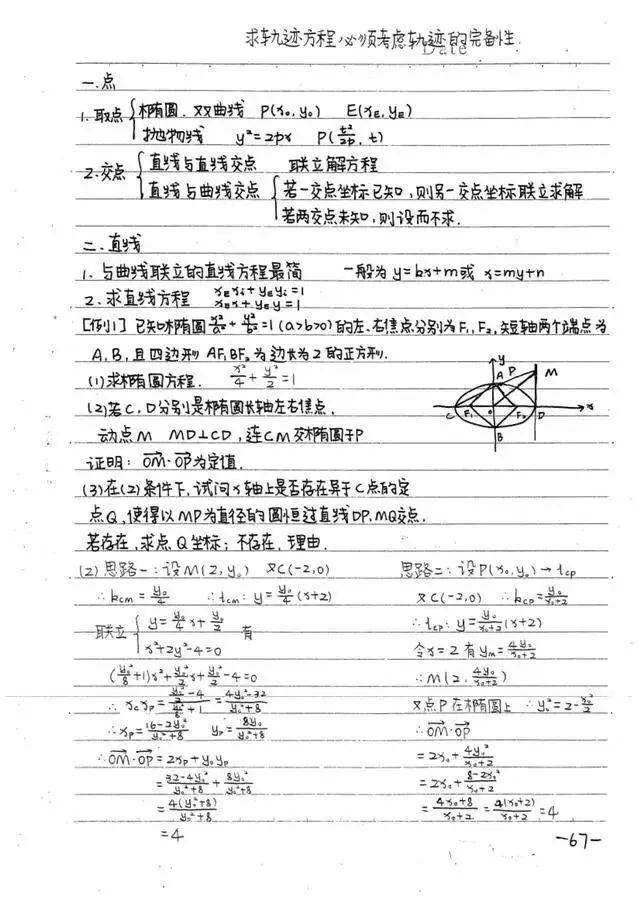 求轨迹方程,必须考虑轨迹的完备性.
Date
一.点
1.取点 { 椭圆.双曲线 P(x₀,y₀) E(x_E,y_E)
抛物线 y²=2px P(t²/2p, t)
2.交点 { 直线与直线交点 联立解方程
直线与曲线交点 { 若一交点坐标已知,则另一交点坐标联立求解
若两交点未知,则设而不求.
二.直线
1.与曲线联立的直线方程最简 一般为y=kx+m或 x=my+n
2.求直线方程 x_E x_i + y_E y_i = 1
x_E x + y_E y = 1
[例1] 已知椭圆x²/a²+y²/b²=1(a>b>0)的左.右焦点分别为F₁,F₂,短轴两个端点为
A,B,且四边形AF₁BF₂为边长为2的正方形.
(1)求椭圆方程. x²/4+y²/2=1
(2)若C,D分别是椭圆长轴左右焦点,
动点M MD⊥CD,连CM交椭圆于P
证明:OM·OP为定值.
(3)在(2)条件下,试问x轴上是否存在异于C点的定
点Q,使得以MP为直径的圆恒过直线DP,MQ交点.
若存在,求点Q坐标;不存在,理由.
y
A P M
C F₁ O F₂ D x
B
(2)思路一:设M(2,y₀) 又C(-2,0)
∴k_CM=y₀/4 ∴l_CM:y=y₀/4(x+2)
联立 { y=y₀/4 x+y₀/2 有
x²+2y²-4=0
(y₀²/8+1)x²+y₀²/2 x+y₀²/2-4=0
∴x_C x_P=(y₀²/2-4)/(y₀²/8+1)=(4y₀²-32)/(y₀²+8)
∴x_P=(16-2y₀²)/(y₀²+8) y_P=8y₀/(y₀²+8)
∴OM·OP=2x_P+y₀y_P
=(32-4y₀²)/(y₀²+8)+8y₀²/(y₀²+8)
=4(y₀²+8)/(y₀²+8)
=4
思路二:设P(x₀,y₀)→l_CP
又C(-2,0) ∴k_CP=y₀/(x₀+2)
∴l_CP:y=y₀/(x₀+2)(x+2)
令x=2有y_M=4y₀/(x₀+2)
∴M(2,4y₀/(x₀+2))
又点P在椭圆上 ∴y₀²=2-x₀²/2
∴OM·OP
=2x₀+4y₀²/(x₀+2)
=2x₀+(8-2x₀²)/(x₀+2)
=(4x₀+8)/(x₀+2)=4(x₀+2)/(x₀+2)=4
-67-